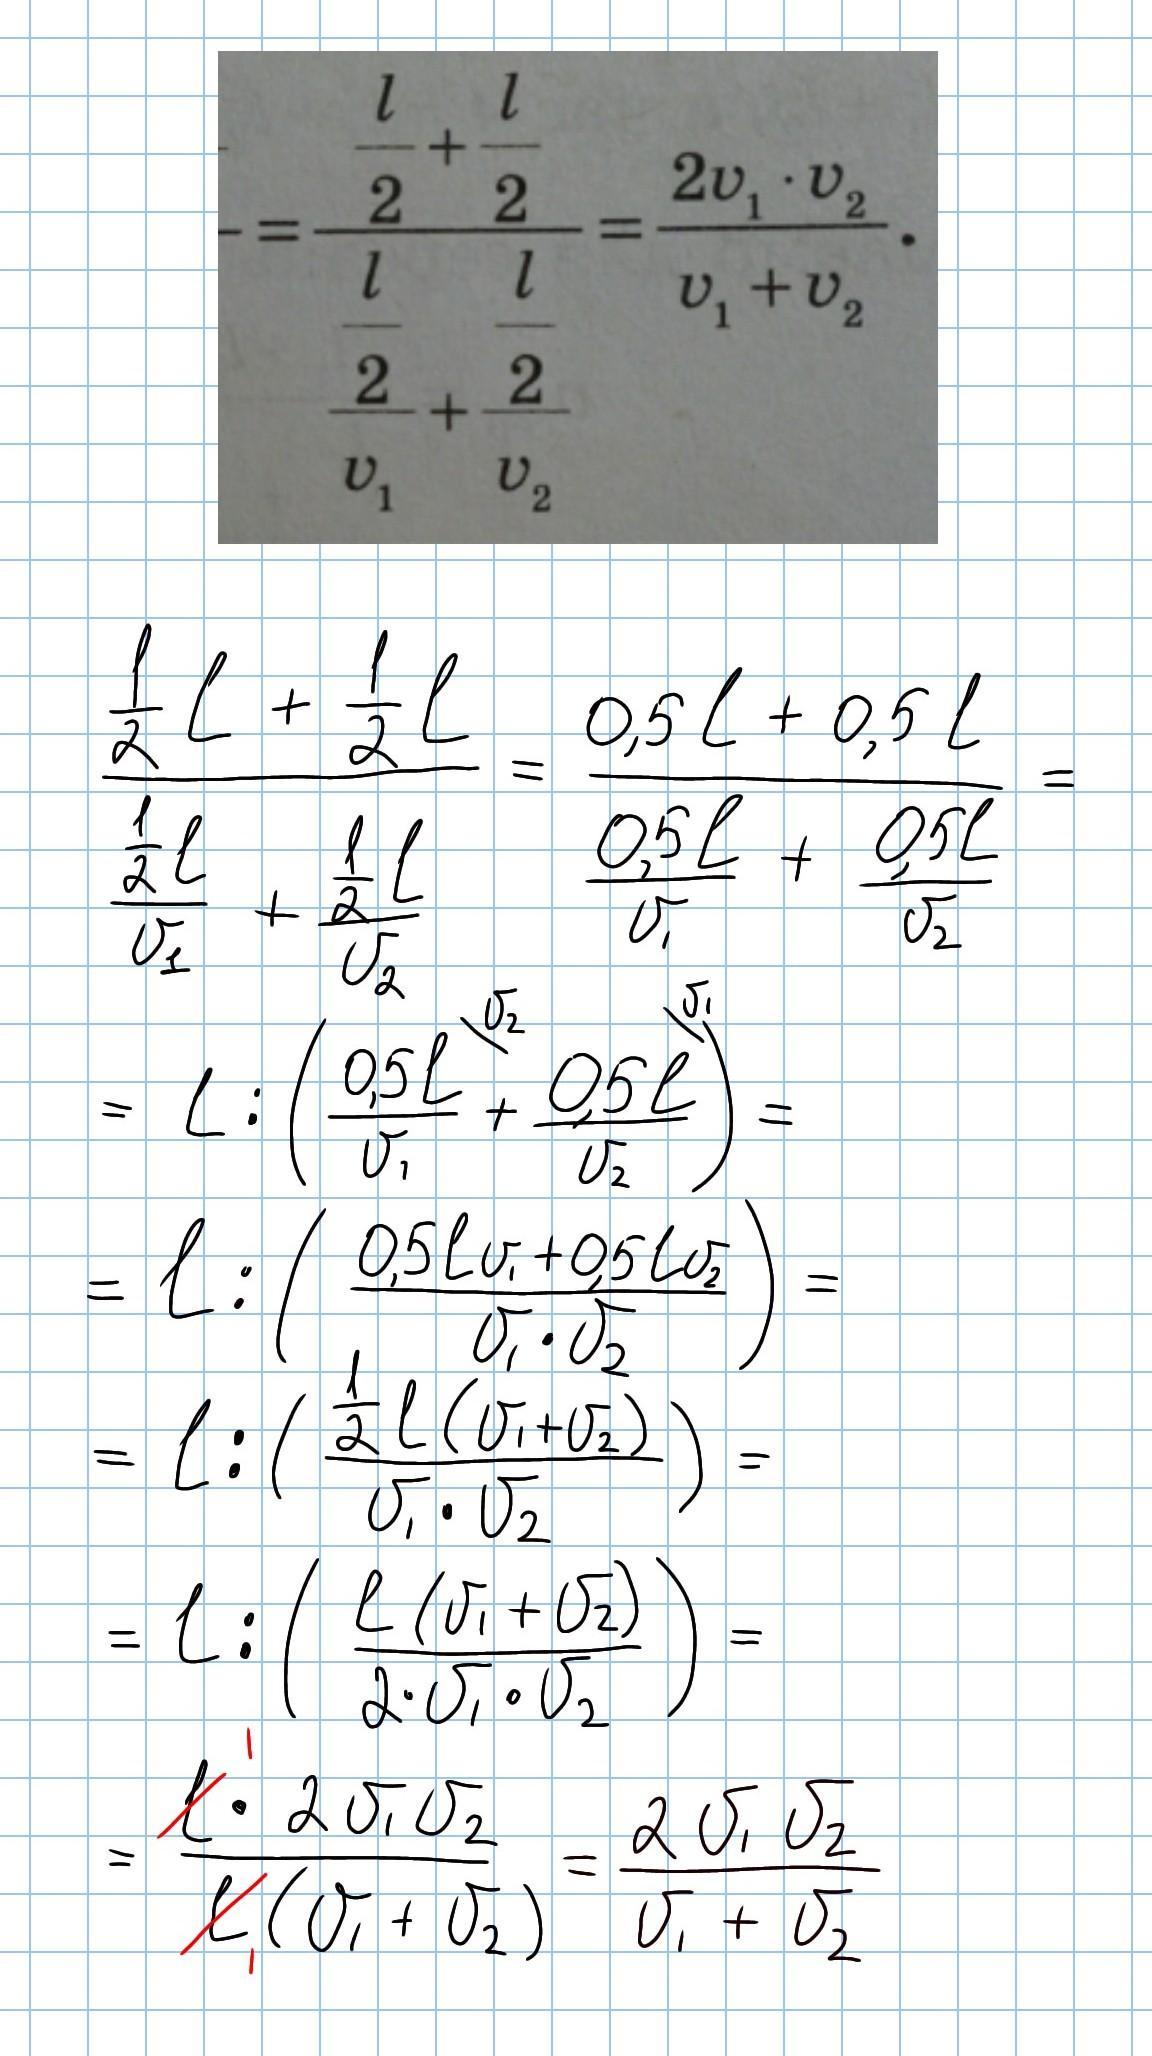 = (l/2 + l/2)/((l/2)/v₁ + (l/2)/v₂) = (2v₁ · v₂)/(v₁ + v₂).
(1/2 l + 1/2 l)/((1/2 l)/v₁ + (1/2 l)/v₂) = (0,5l + 0,5l)/(0,5l/v₁ + 0,5l/v₂) =
= l : (0,5l/v₁ \v₂ + 0,5l/v₂ \v₁) =
= l : ((0,5lv₁ + 0,5lv₂)/(v₁ · v₂)) =
= l : ((1/2 l(v₁ + v₂))/(v₁ · v₂)) =
= l : ((l(v₁ + v₂))/(2 · v₁ · v₂)) =
1
= (l · 2v₁v₂)/(l(v₁ + v₂)) = (2v₁v₂)/(v₁ + v₂)
1